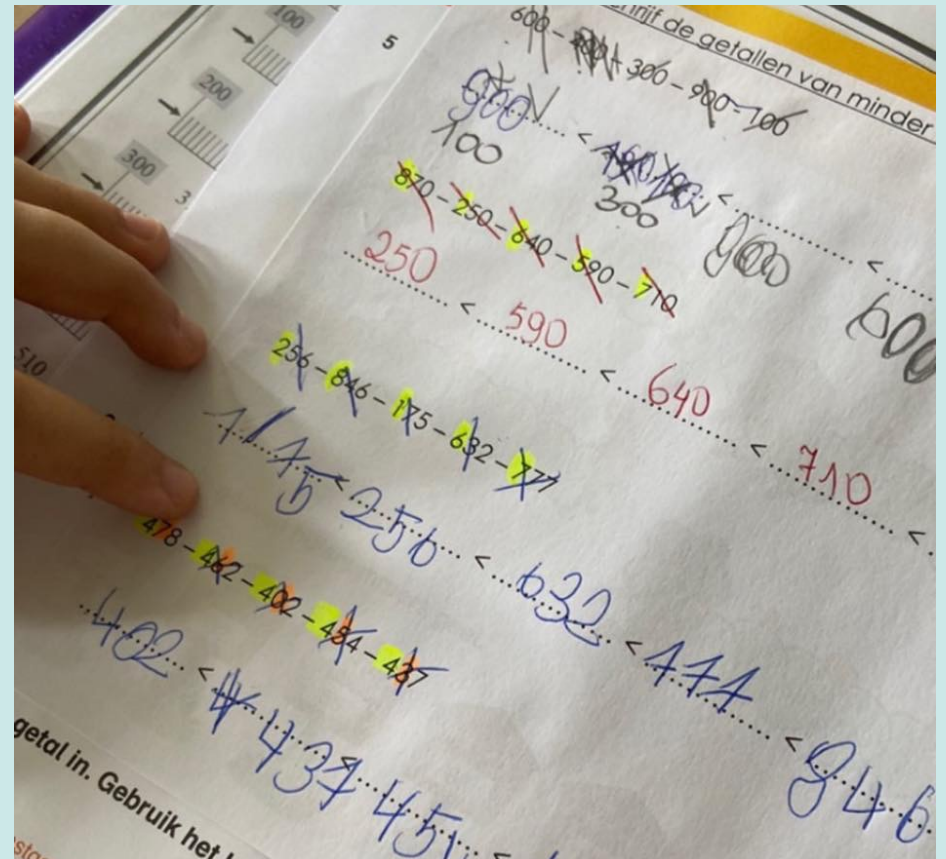 100
200
300
3
510
5
rijf de getallen van minder
600 - 300 - 900 - 100
900 <
100 < 300 < 900 < 600
870 - 250 - 640 - 590 - 710
250 < 590 < 640 < 710 <
256 - 846 - 175 - 632 - 777
175 < 256 < 632 < 777 < 846
478 - 462 - 402 - 454 - 437
402 < 437 <
getal in. Gebruik het